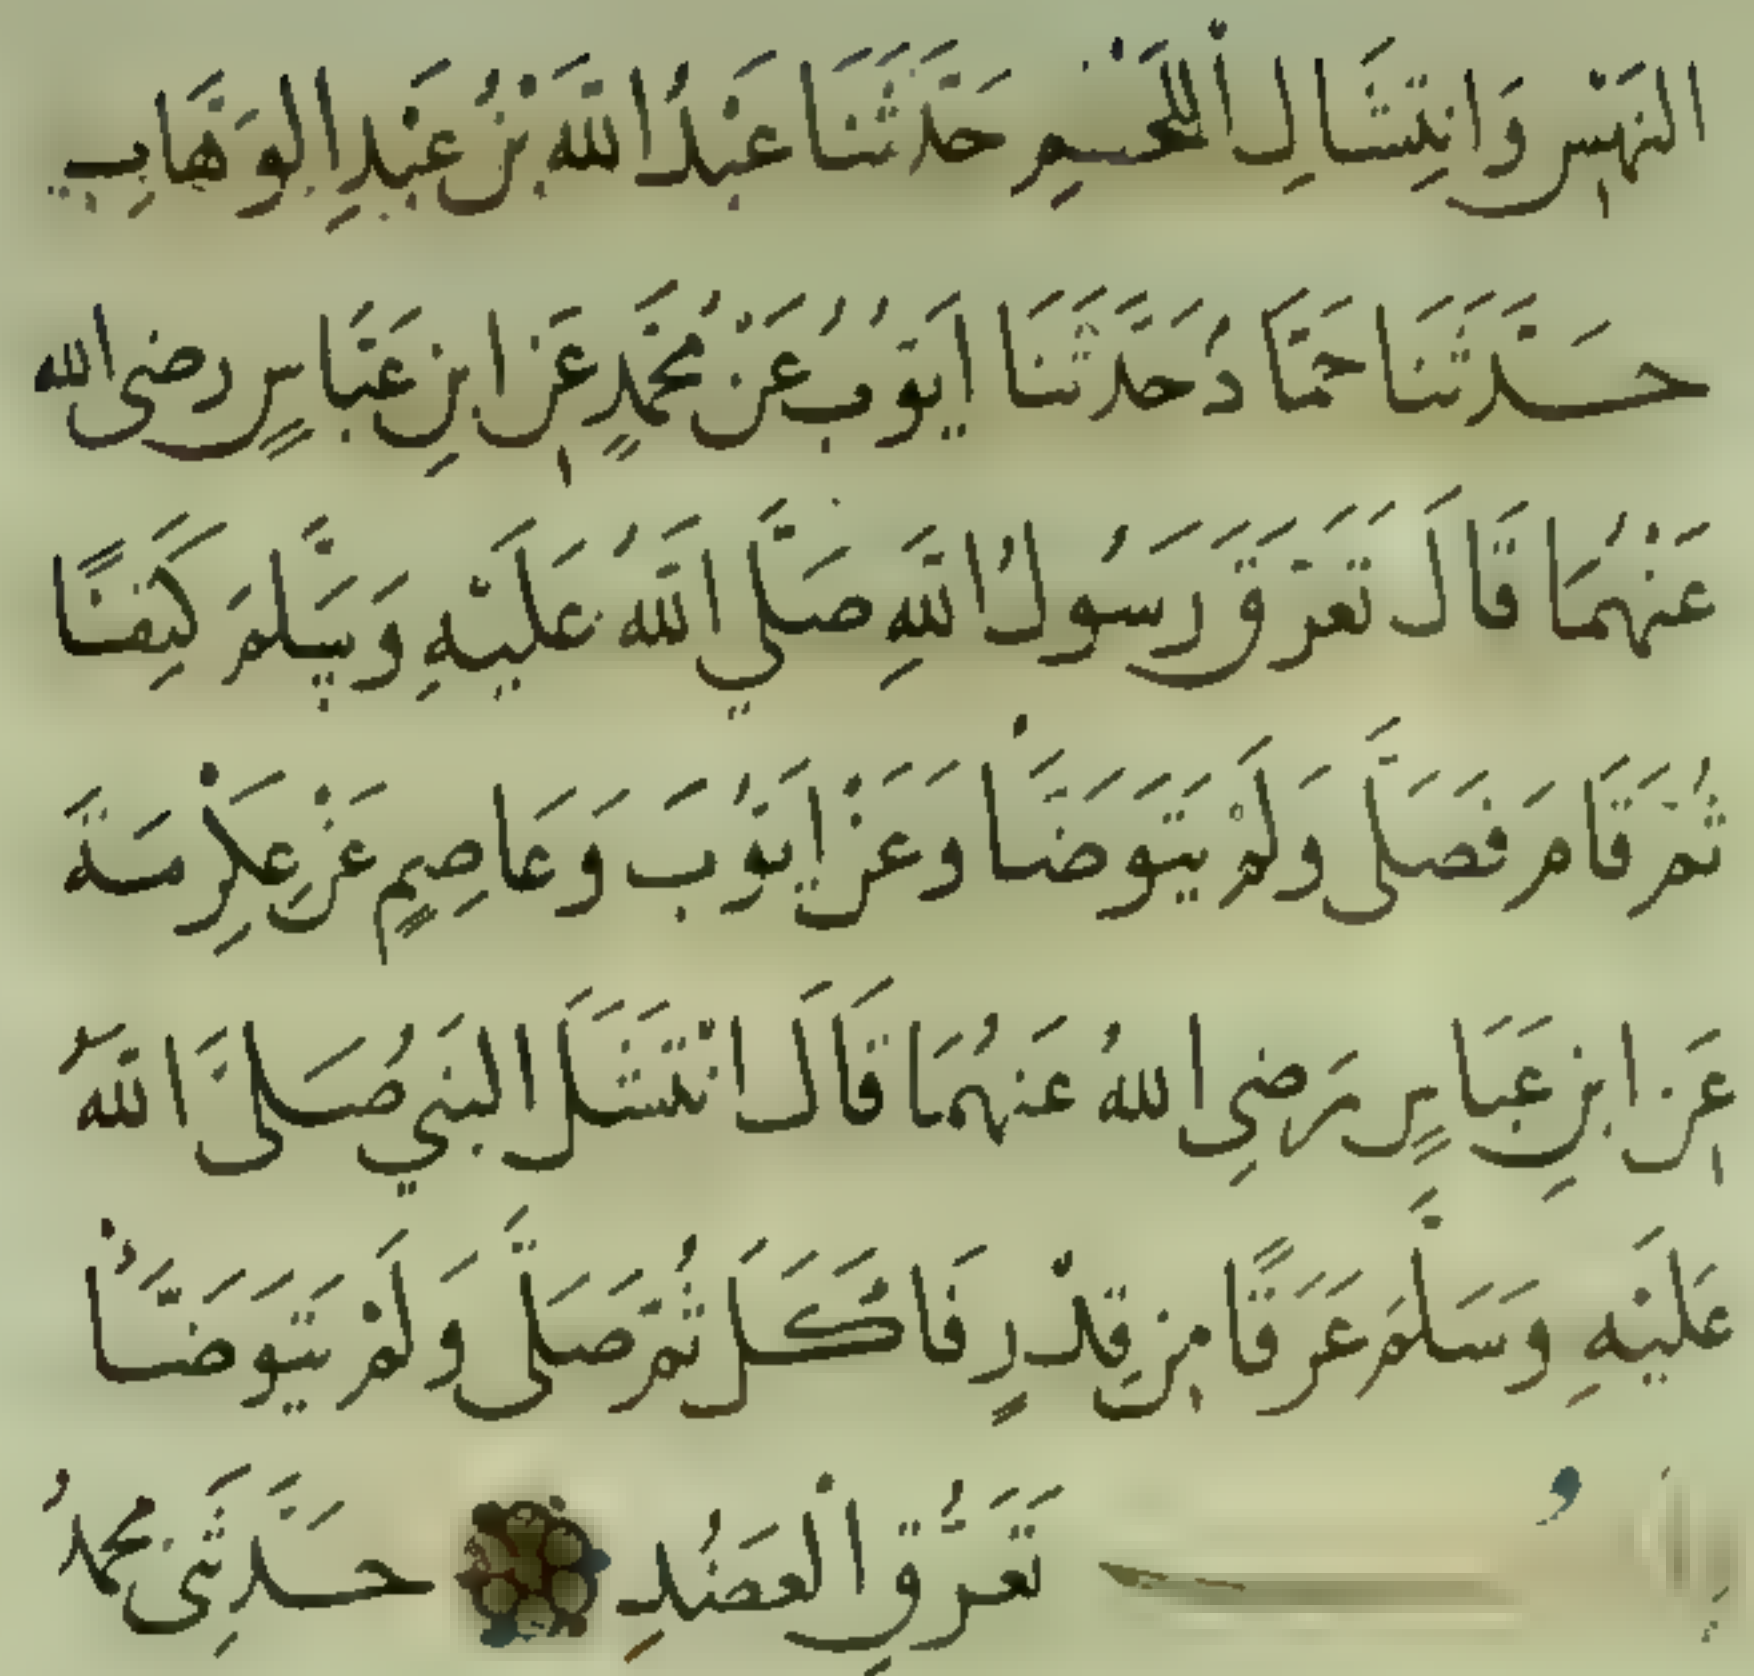 النَّهْسِ وَانْتِشَالِ اللَّحْمِ حَدَّثَنَا عَبْدُ اللَّهِ بْنُ عَبْدِ الْوَهَّابِ
حَدَّثَنَا حَمَّادُ حَدَّثَنَا اَيُّوبُ عَنْ مُحَمَّدٍ عَنِ ابْنِ عَبَّاسٍ رضى الله
عَنْهُمَا قَالَ تَعَرَّقَ رَسُولُ اللَّهِ صَلَّي اللَّهُ عَلَيْهِ وَسَلَّمَ كَتِفًا
ثُمَّ قَامَ فَصَلَّى وَلَمْ يَتَوَضَّأْ وَعَنْ اَيُّوبَ وَعَاصِمٍ عَنْ عِكْرِمَةَ
عَنِ ابْنِ عَبَّاسٍ رَضِى اللهُ عَنْهُمَا قَالَ انْتَشَلَ النَّبِيُّ صَلَّى اللَّهُ
عَلَيْهِ وَسَلَّمَ عَرَقًا مِنْ قِدْرٍ فَاَكَلَ ثُمَّ صَلَّى وَلَمْ يَتَوَضَّأْ
تَعَرُّقِ الْعَضُدِ حَدَّثَنِى مُحَمَّدُ